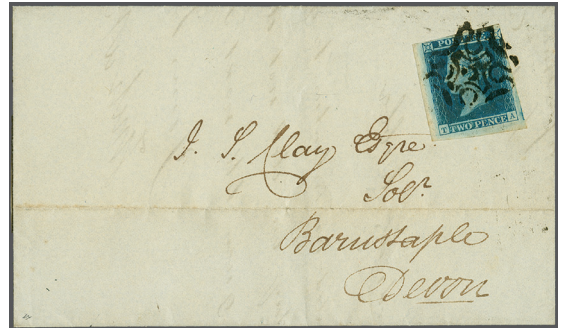 POSTAGE
TWO PENCE
T A
J. S. Clay Esqre
Solr.
Barnstaple
Devon